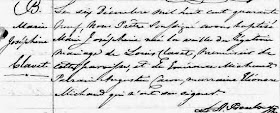 B
Marie
Josephine
Clavet
Le six Décembre mil huit cent quarante
neuf, Nous Prêtre soussigné avons baptisé
Marie Josephine née la veille du légitime
mariage de Louis Clavet, menuisier de
cette paroisse et de Emérence Michaud
Parrain Augustin Caron, marraine Eléonore
Michaud qui n'ont su signer